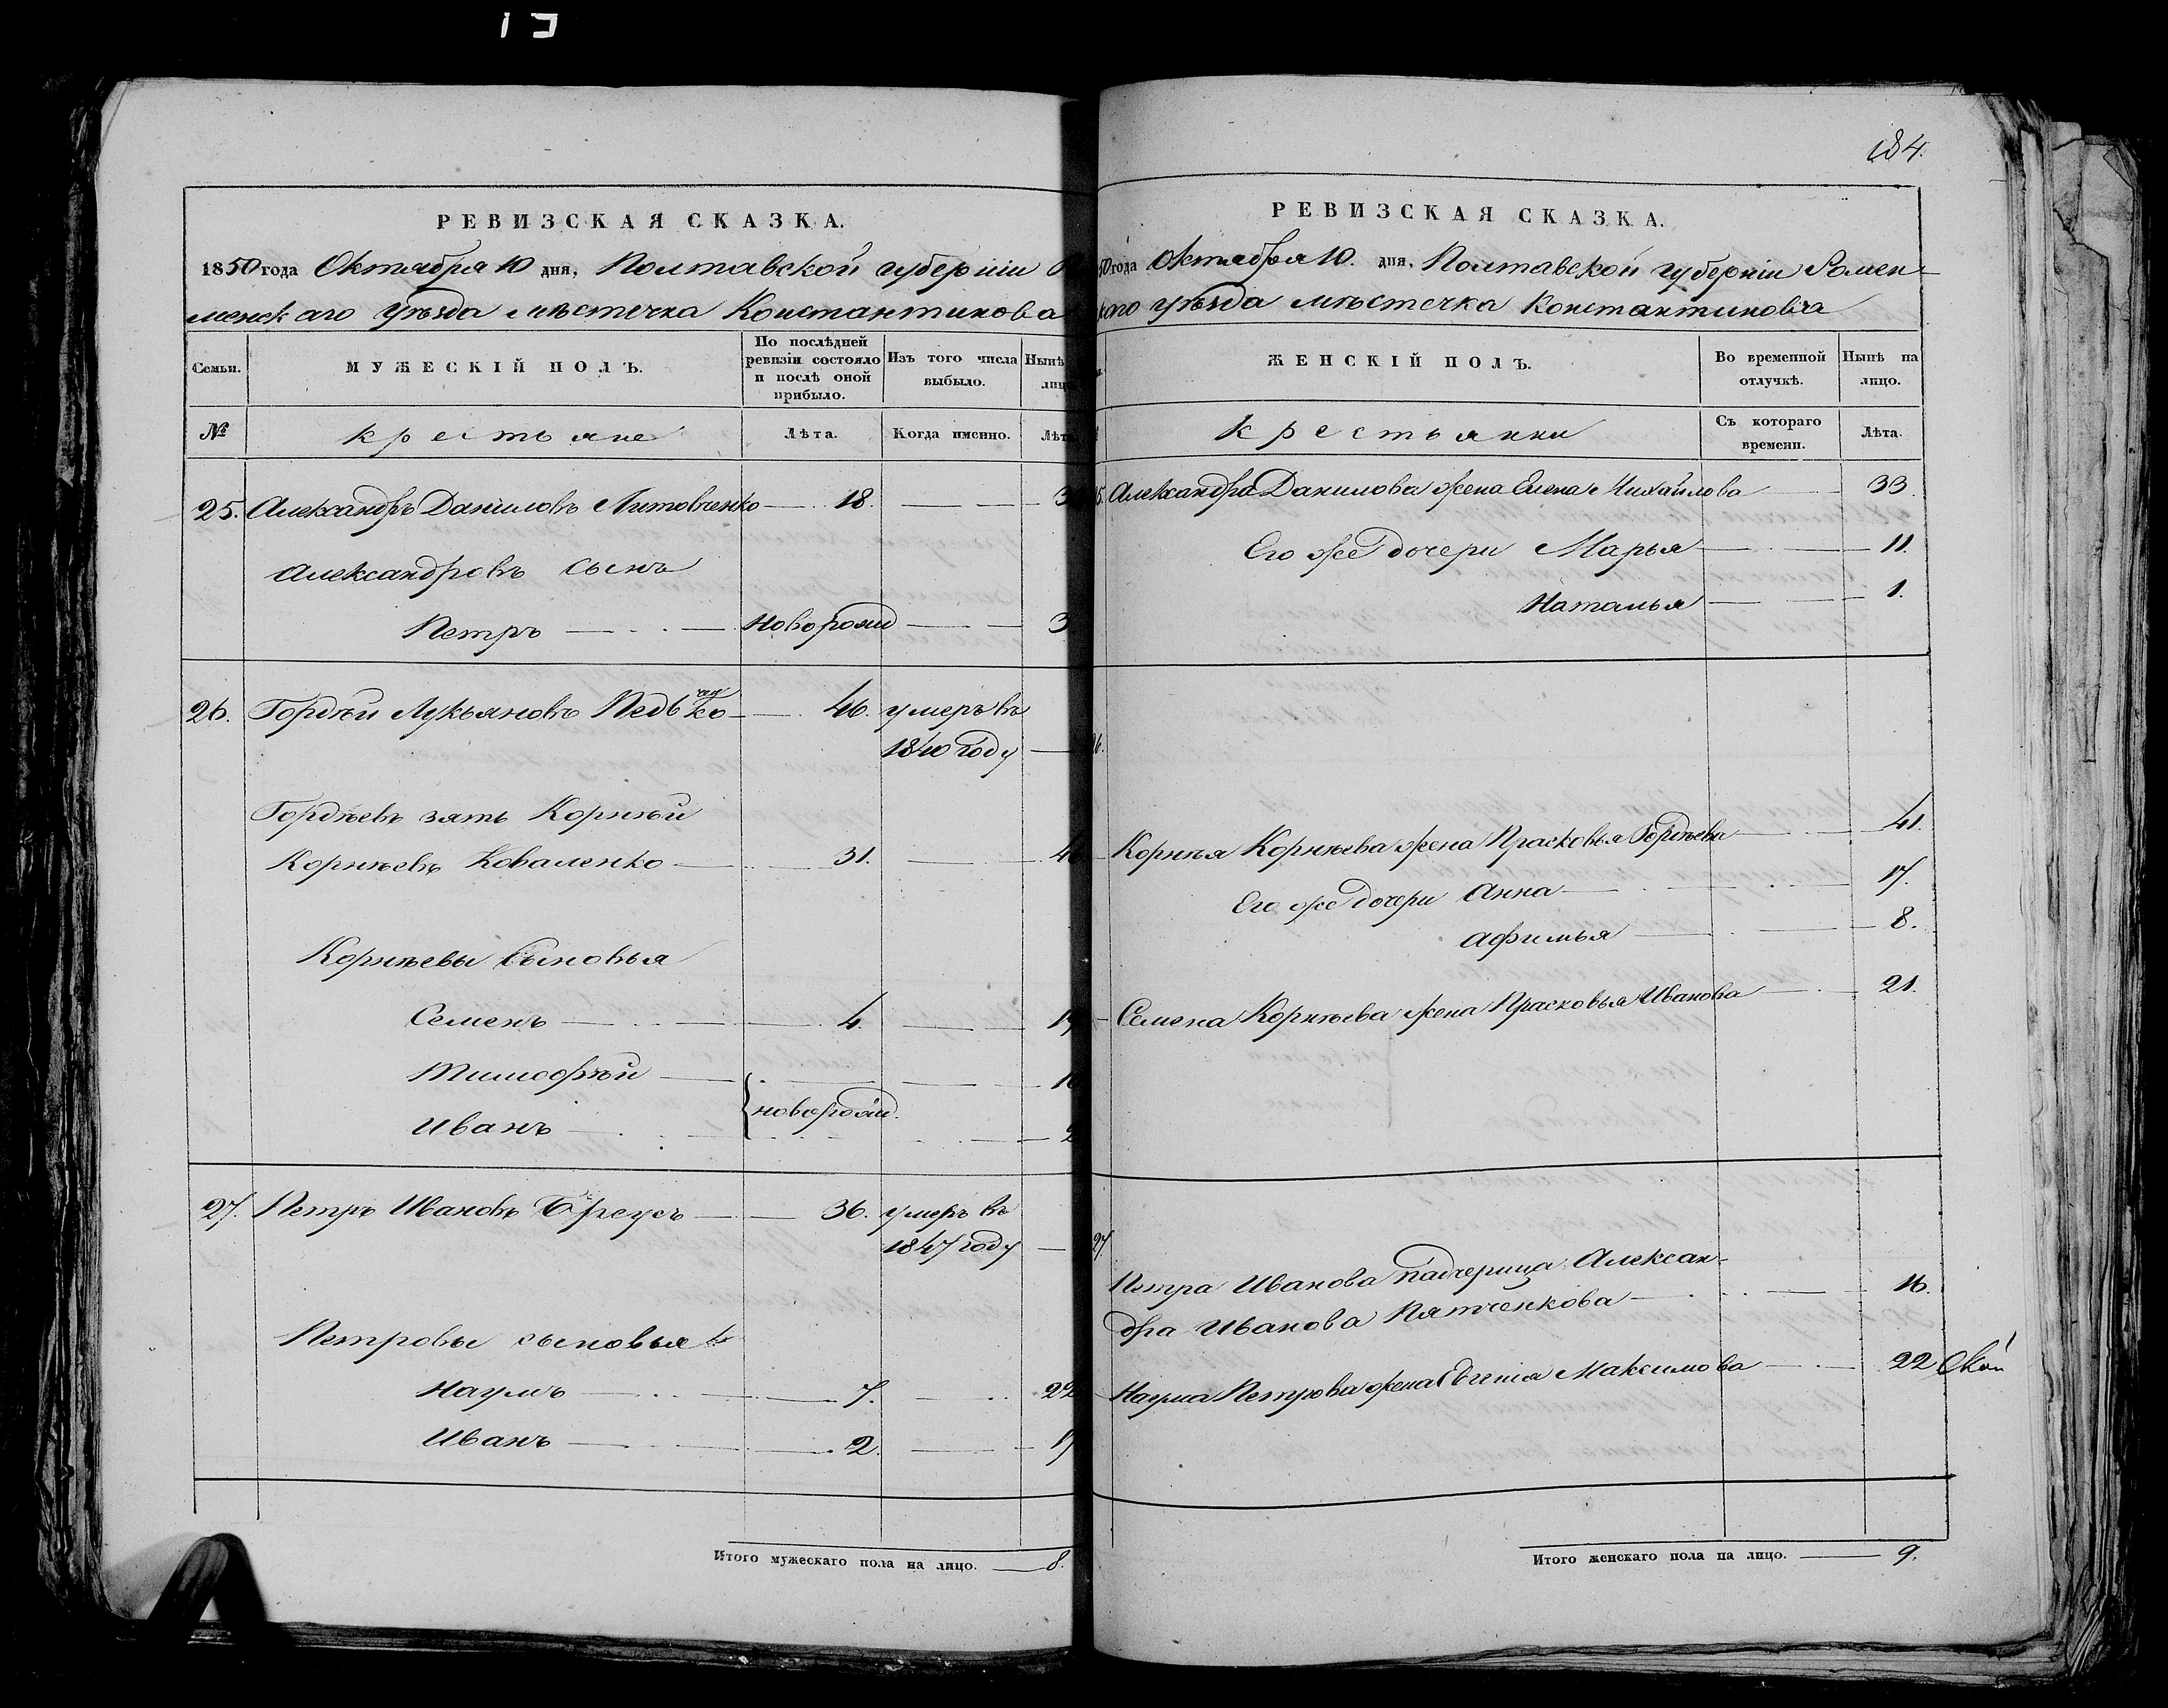 184.
РЕВИЗСКАЯ СКАЗКА.
1850 года Октября 10 дня, Полтавской губерніи
менскаго Уѣзда мѣстечка Константинова
Семьи.
МУЖЕСКІЙ ПОЛЪ.
По послѣдней ревизіи состояло и послѣ оной прибыло.
Изъ того числа выбыло.
Нынѣ
лиц
№
крестьяне
Лѣта.
Когда именно.
Лѣт
25. Александръ Даниловъ Литовченко 18. 3
Александровъ сынъ
Петръ новорожд 3
26. Гордѣй Лукьяновъ 46. умеръ въ
1840 году
Гордѣевъ зять Корнѣй
Корнѣевъ Коваленко 31. 4
Корнѣевы Сыновья
Семенъ 4. 19
Тимофѣй 1
новорожд.
Иванъ 2
27. Петръ Ивановъ Бреусъ 36. умеръ въ
1847 году
Петровы сыновья
Наумъ 7. 22
Иванъ 2. 17
Итого мужескаго пола на лицо. 8.
РЕВИЗСКАЯ СКАЗКА.
50 года Октября 10. дня, Полтавской губерніи Ромен-
каго уѣзда мѣстечка Константинова
ЖЕНСКІЙ ПОЛЪ.
Во временной отлучкѣ.
Нынѣ на лицо.
крестьянки
Съ котораго времени.
Лѣта.
5. Александра Данилова жена Елена Михайлова 33.
Его же дочери Марья 11.
Наталья 1.
6.
Корнѣя Корнѣева жена Прасковья Гордѣева 41.
Его же дочери Анна 17.
Афимья 8.
Семена Корнѣева жена Прасковья Иванова 21.
27.
Петра Иванова падчерица Алексан-
дра Иванова Пятченкова 16.
Наума Петрова жена Евгенія Максимова 22
Итого женскаго пола на лицо. 9.